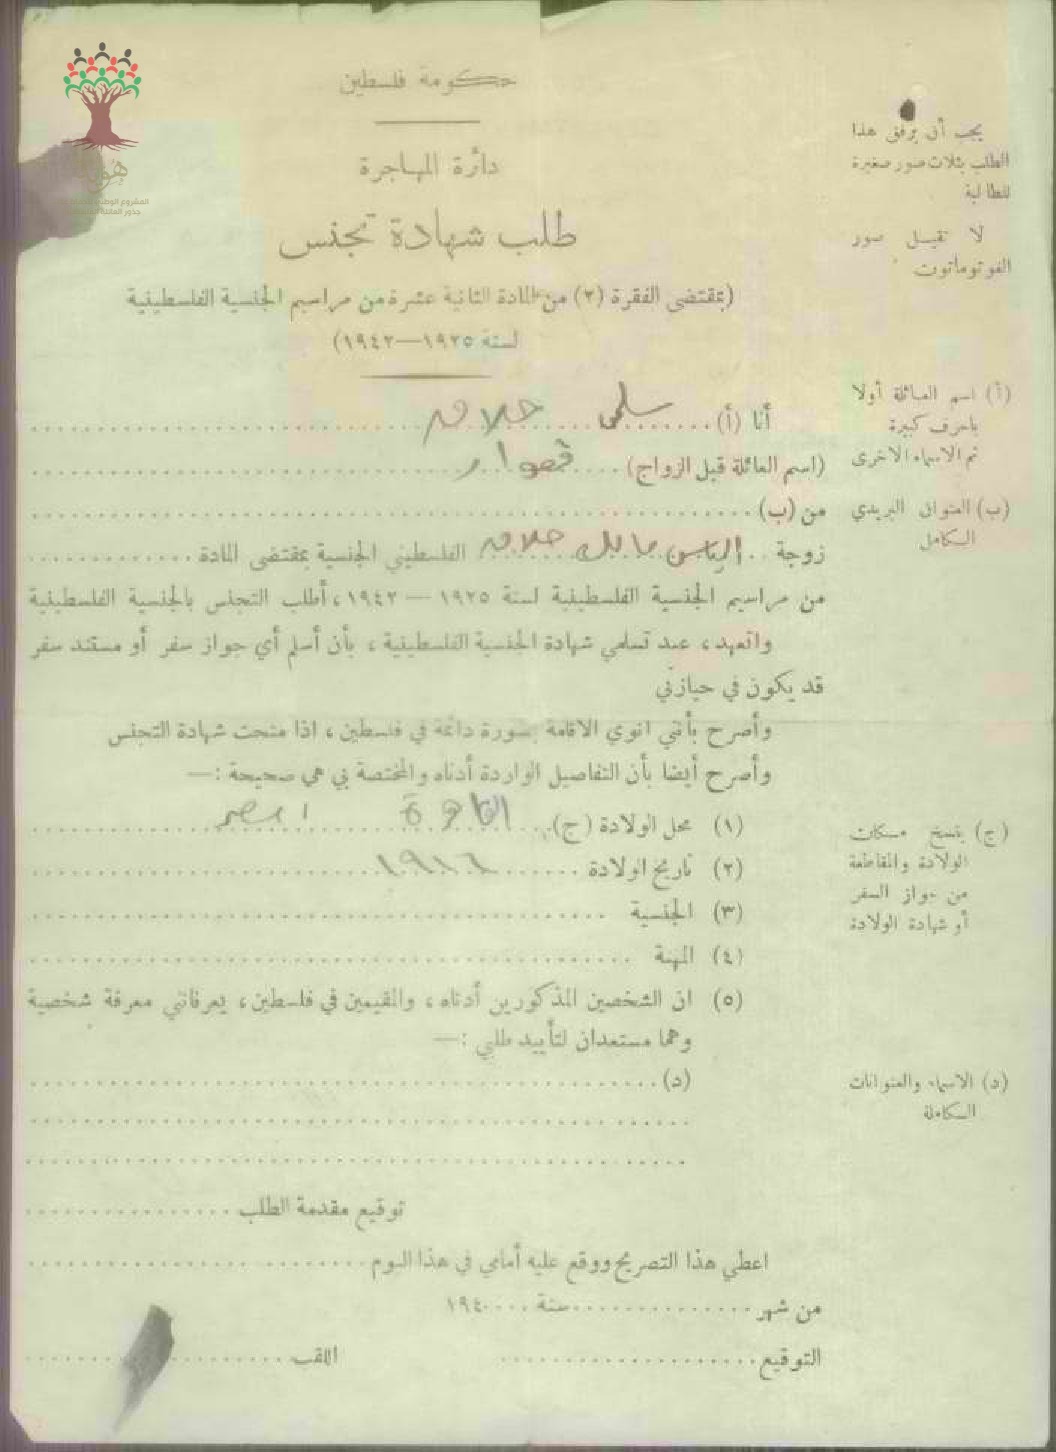 حكومة فلسطين
دائرة المهاجرة
طلب شهادة تجنس
(بمقتضى الفقرة (٢) من المادة الثانية عشرة من مراسيم الجنسية الفلسطينية
لسنة ١٩٢٥—١٩٤٢)
يجب أن يرفق هذا
الطلب بثلاث صور صغيرة
للطالبة
لا تقبل صور
الفوتوماتون
هوية
المشروع الوطني
جذور العائلة
(أ) اسم العائلة أولا
باحرف كبيرة
ثم الاسماء الاخرى
أنا (أ) سلمى حلاق
(اسم العائلة قبل الزواج) قصوار
(ب) العنوان البريدي
الكامل
من (ب)
زوجة الياس حلاق الفلسطيني الجنسية بمقتضى المادة
من مراسيم الجنسية الفلسطينية لسنة ١٩٢٥ — ١٩٤٢، أطلب التجنس بالجنسية الفلسطينية
واتعهد، عند تسلمي شهادة الجنسية الفلسطينية، بأن أسلم أي جواز سفر أو مستند سفر
قد يكون في حيازتي
وأصرح بأنني انوي الاقامة بصورة دائمة في فلسطين، اذا منحت شهادة التجنس
وأصرح أيضا بأن التفاصيل الواردة أدناه والمختصة بي هي صحيحة :—
(١) محل الولادة (ج) القاهرة مصر
(ج) ينسخ مكان
الولادة والمقاطعة
من جواز السفر
أو شهادة الولادة
(٢) تاريخ الولادة ١٩١٦
(٣) الجنسية
(٤) المهنة
(٥) ان الشخصين المذكورين أدناه، والمقيمين في فلسطين، يعرفانني معرفة شخصية
وهما مستعدان لتأييد طلبي :—
(د)
(د) الاسماء والعنوانات
الكاملة
توقيع مقدمة الطلب
اعطي هذا التصريح ووقع عليه أمامي في هذا اليوم
من شهر سنة ١٩٤٠
التوقيع اللقب